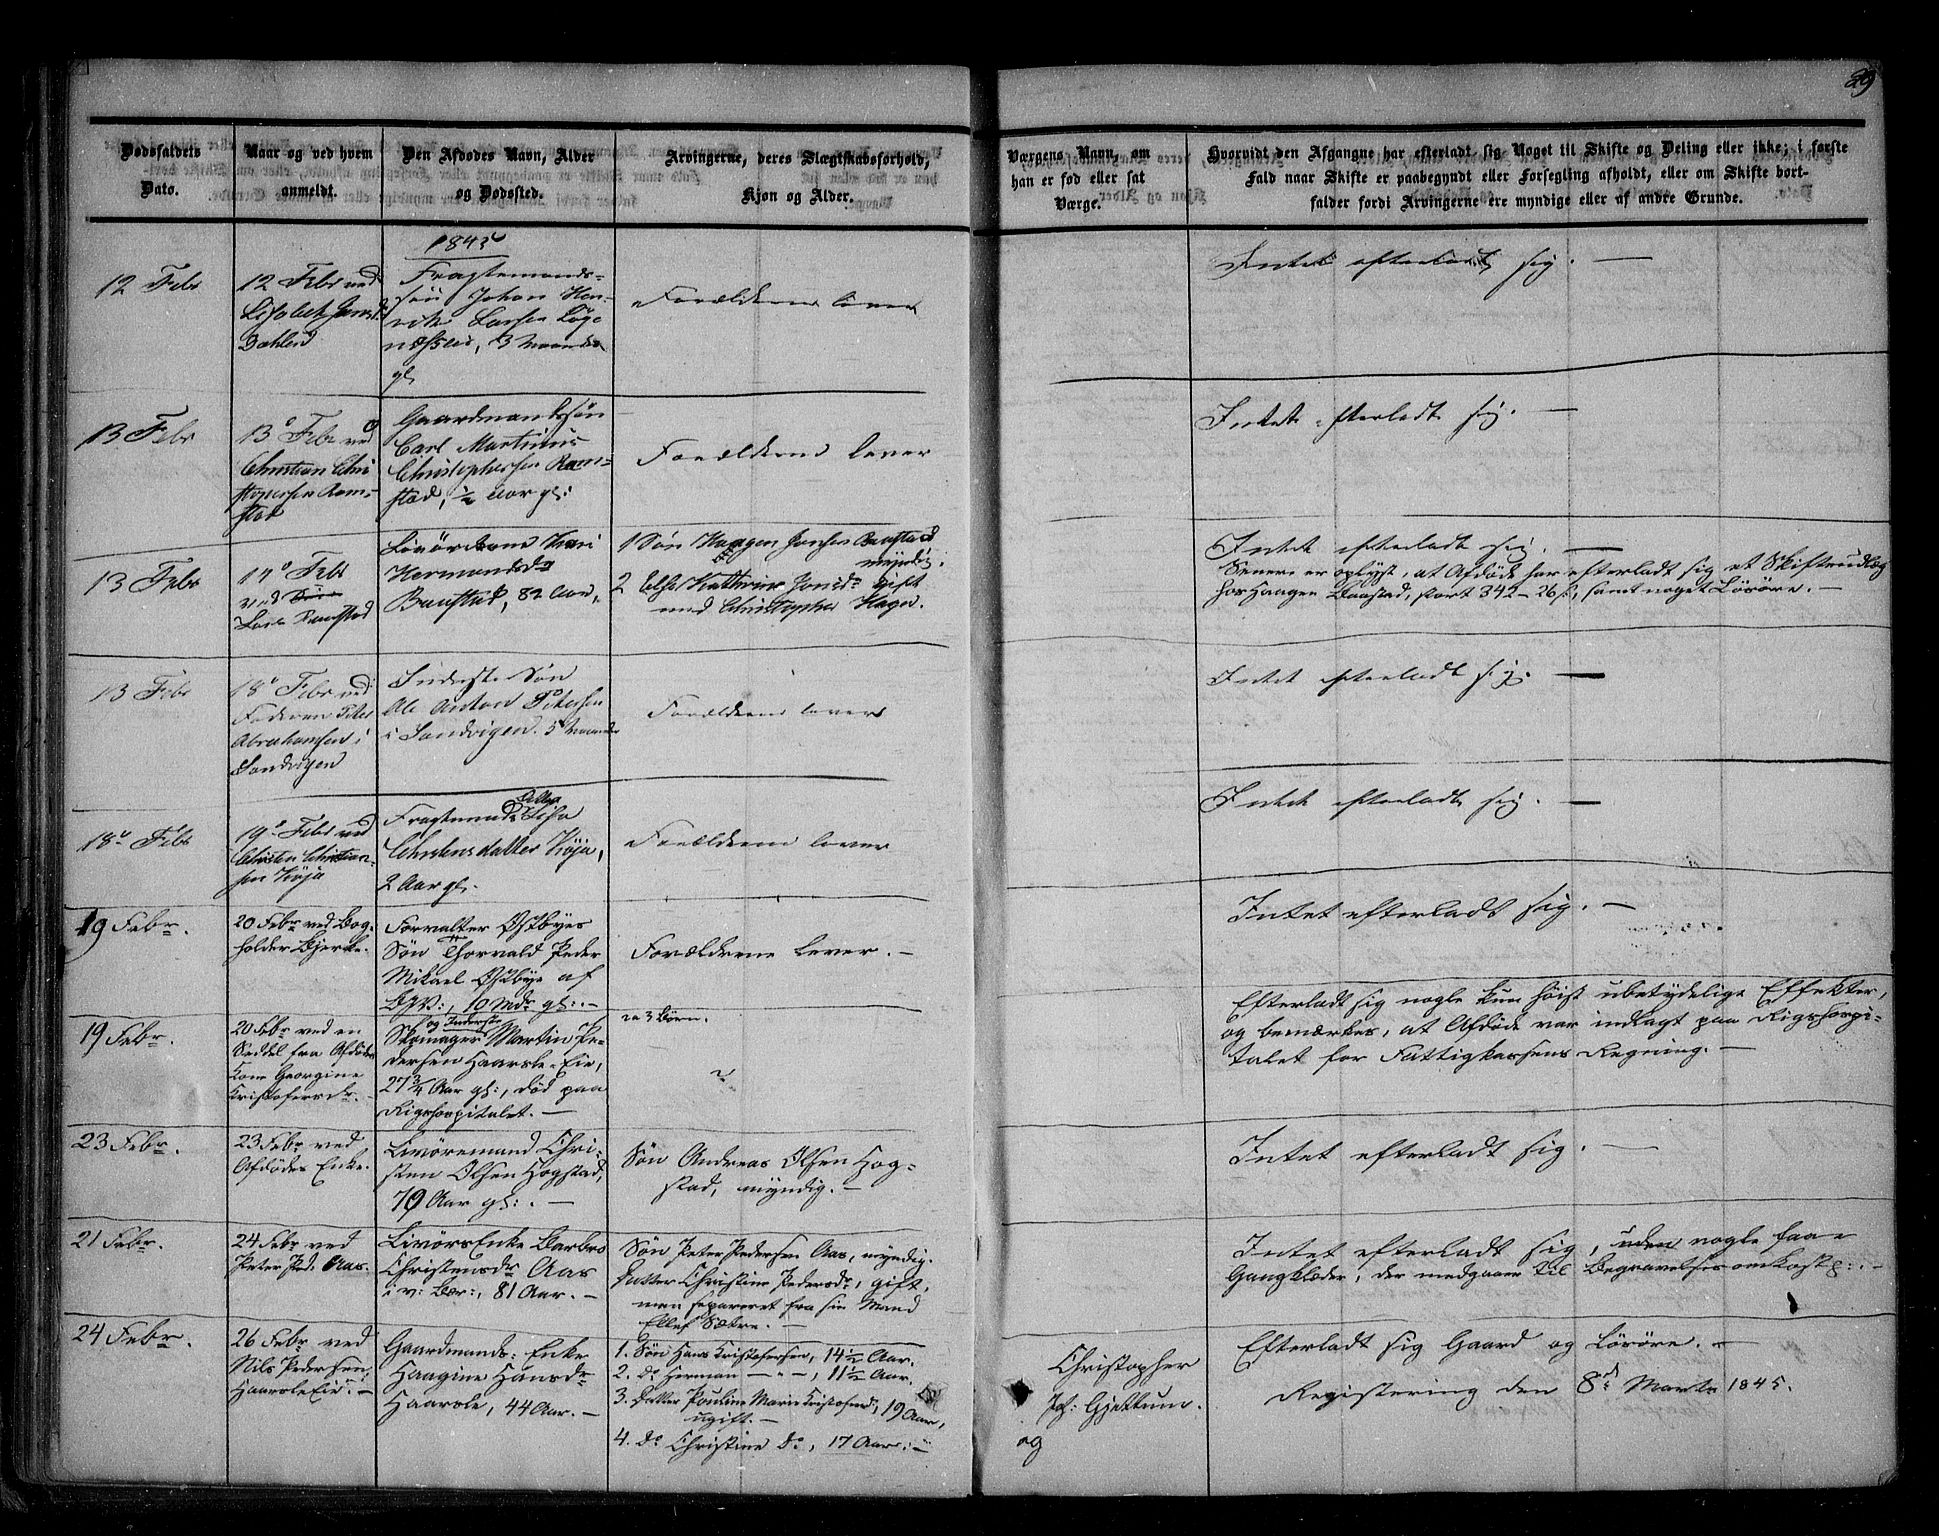 29
Dødsfaldets
Dato.
Naar og ved hvem
anmeldt.
Den Afdødes Navn, Alder
og Dødssted.
Arvingerne, deres Slægtskabsforhold,
Kjøn og Alder.
Værgens Navn, om
han er fød eller sat
Værge.
Hvorvidt den Afgangne har efterladt sig Noget til Skifte og Deling eller ikke; i første
Fald naar Skifte er paabegyndt eller Forsegling afholdt, eller om Skifte bort-
falder fordi Arvingerne ere myndige eller af andre Grunde.
1845
12 Febr
12 Febr ved
Lisabeth
Dæhlen
Fragtemands-
søn Johan Hen-
rik Larsen
3 Maaneder
gl.
Forældrene lever
Intet efterladt sig. —
13 Febr
13 Febr ved
Christian Chri
stophersen Ram-
stad
Gaardmandssøn
Carl Martinus
Christophersen Ram-
stad, ½ Aar gl:
Forældrene lever
Intet efterladt sig. —
13 Febr
17 Febr
ved
Lars Baustad
Kari
Hermandsdr
Baustad, 82 Aar,
1 Søn Haagen Jonsen Baustad
myndig.
2 Else Kathrine Jonsdr gift
med Christopher Hagen.
Intet efterladt sig. —
Senere er oplyst, at Afdøde har efterladt sig et Skifteudlæg
hos Haagen Baastad, stort 342 - 26 ß, samt noget Løsøre. —
13 Febr
18 Febr ved
Faderen Peter
Abrahamsen i
Sandvigen
Inderste Søn
Ole Anton Petersen
i Sandvigen. 5 Maaneder
Forældrene lever
Intet efterladt sig. —
18 Febr
19 Febr ved
Christen Christian-
sen Køja
Fragtemands Datter Lisa
Christensdatter Køja,
2 Aar gl.
Forældrene lever
Intet efterladt sig. —
19 Febr.
20 Febr ved Bog-
holder Bjerke.
Forvalter Østbyes
Søn Thorvald Peder
Mikael Østbye af
10 Mdr gl: —
Forældrene lever. —
Intet efterladt sig. —
19 Febr.
20 Febr ved en
Seddel fra Afdødes
Kone Georgine
Kristofersdr. —
Skomager og Inderste Martin Pe-
dersen Haarsle-Eie,
27¾ Aar gl:, død paa
Rigshospitalet. —
2 a 3 Børn.
Efterladt sig nogle kun høist ubetydelige Effekter,
og bemærkes, at Afdøde var indlagt paa Rigshospi-
talet for Fattigkassens Regning. —
23 Febr.
23 Febr ved
Afdødes Enke.
Livøremand Chri-
sten Olsen Hogstad,
79 Aar gl:. —
Søn Andreas Olsen Hog-
stad, myndig. —
Intet efterladt sig. —
21 Febr.
24 Febr ved
Peter Ped: Aas.
Livørs Enke Barbro
Christensdr Aas
i v: Bær:, 81 Aar. —
Søn Peter Pedersen Aas, myndig.
Datter Christine Pedersdr, gift,
men separeret fra sin Mand
Ellef Sætre. —
Intet efterladt sig, uden nogle faae
Gangklæder, der medgaaer til Begravelsesomkostg:. —
24 Febr.
26 Febr ved
Nils Pedersen,
Haarsle Eie. —
Gaardmands-Enke
Haagine Hansdr
Haarsle, 44 Aar. —
1. Søn Hans Kristofersen, 14½ Aar.
2. do Herman — " —, 11½ Aar.
3. Datter Pauline Marie Kristofersd, 19 Aar,
ugift. —
4. do Christine do, 17 Aar. —
Christopher
Gjettum.
og
Efterladt sig Gaard og Løsøre. —
Registering den 8de Marts 1845.